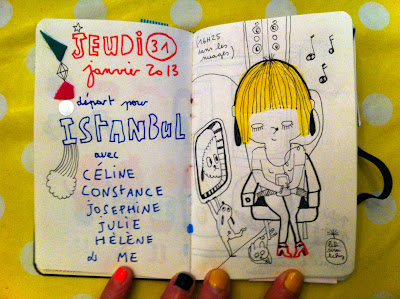 JEUDI 31
janvier 2013
départ pour
ISTANBUL
avec
CÉLINE
CONSTANCE
JOSEPHINE
JULIE
HÉLÈNE
& ME
(16H25
dans les
nuages)